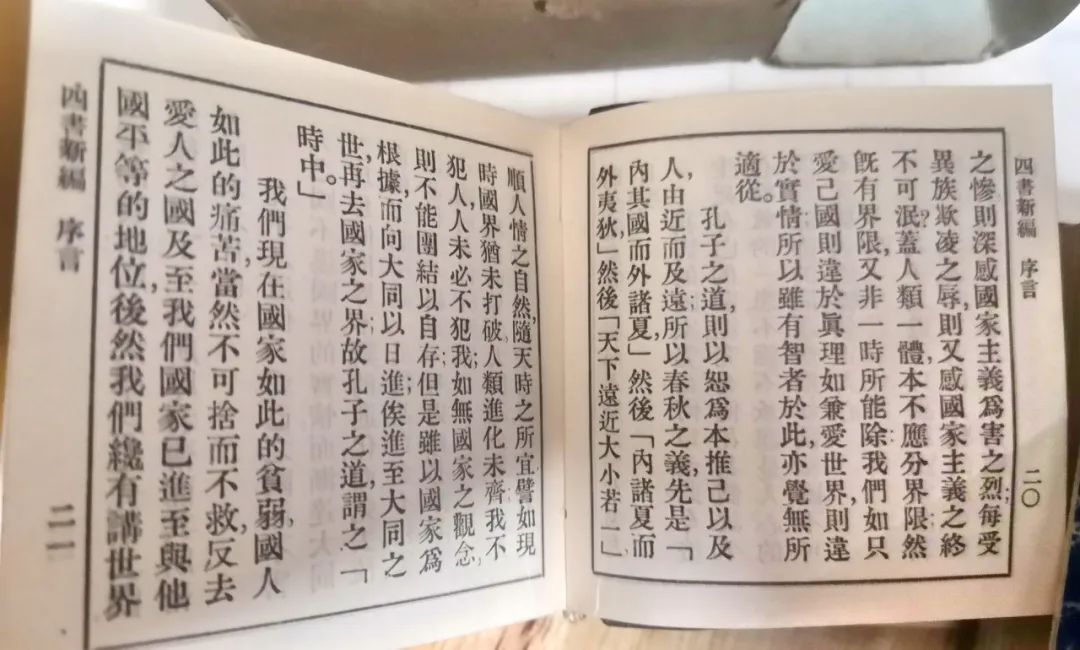 四書新編 序言 二〇
之慘則深感國家主義爲害之烈;每受
異族欺凌之辱,則又感國家主義之終
不可泯?蓋人類一體,本不應分界限;然
旣有界限,又非一時所能除;我們如只
愛己國則違於眞理;如兼愛世界,則違
於實情;所以雖有智者,於此,亦覺無所
適從。
孔子之道,則以恕爲本,推己以及
人,由近而及遠;所以春秋之義,先是「
內其國而外諸夏」然後「內諸夏而
外夷狄,」然後「天下遠近大小若一」
順人情之自然,隨天時之所宜;譬如現
時國界猶未打破,人類進化未齊;我不
犯人,人未必不犯我;如無國家之觀念,
則不能團結以自存;但是雖以國家爲
根據,而向大同以日進;俟進至大同之
世,再去國家之界;故孔子之道,謂之「
時中。」
我們現在國家如此的貧弱,國人
如此的痛苦,當然不可捨而不救,反去
愛人之國;及至我們國家已進至與他
國平等的地位,後然我們纔有講世界
四書新編 序言 二一